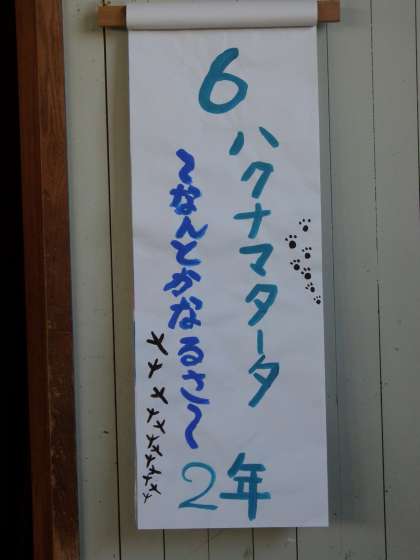 6
ハクナマタータ
〜なんとかなるさ〜
2年